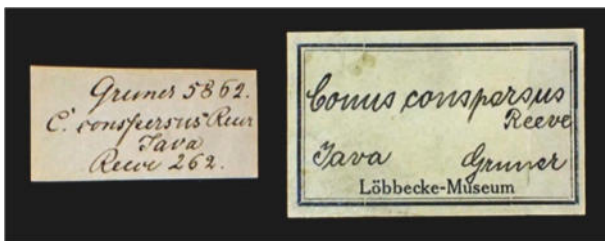 Gruner 5862.
C. conspersus Reev
Java
Reeve 262.
Conus conspersus
Reeve
Java Gruner
Löbbecke-Museum